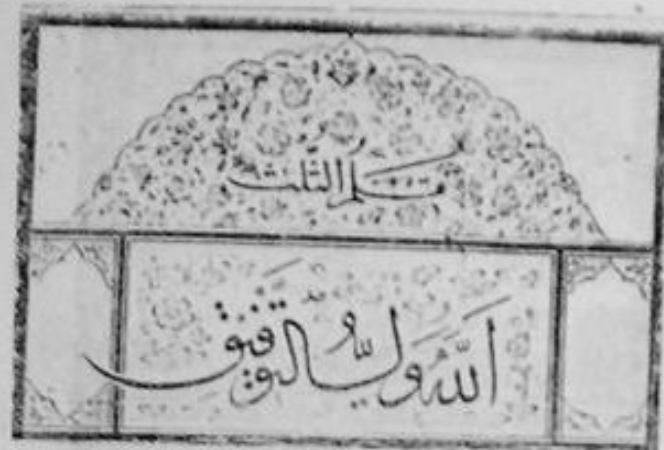 قلم الثلث
الله ولي التوفيق